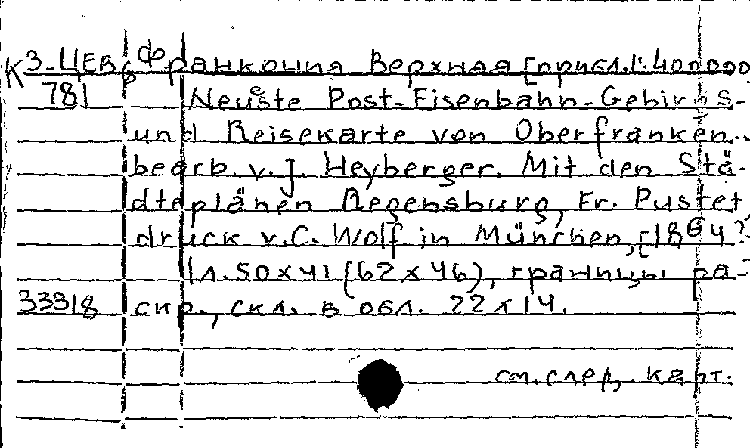 К 3-ЦЕВ Франкония Верхная [прибл. 1:400000
781 Neuste Post-Eisenbahn-Gebirgs-
und Reisekarte von Oberfranken...
bearb. v. J. Heyberger. Mit den Stä-
dteplänen Regensburg, Fr. Pustet,
druck v. C. Wolf in München, [1864?]
1 л. 50x41 (62x46), границы ра-
33318 скр., скл. в обл. 22x14.
см. след. карт.